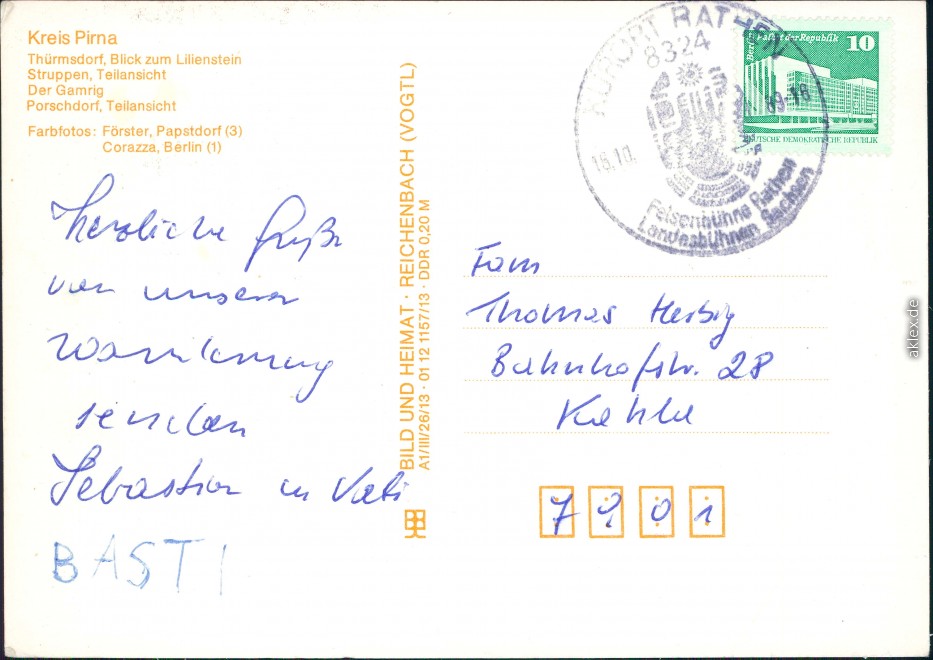 Kreis Pirna
Thürmsdorf, Blick zum Lilienstein
Struppen, Teilansicht
Der Gamrig
Porschdorf, Teilansicht
Farbfotos: Förster, Papstdorf (3)
Corazza, Berlin (1)
Herzliche Grüße
von unserer
Wanderung
senden
Sebastian u Vati
BASTI
BILD UND HEIMAT · REICHENBACH (VOGTL)
A1/III/26/13 · 01 12 1157/13 · DDR 0,20 M
KURORT RATHEN
8324
Felsenbühne Rathen
Landesbühnen Sachsen
Berlin, Palast der Republik 10
DEUTSCHE DEMOKRATISCHE REPUBLIK
Fam
Thomas Herbig
Bahnhofstr. 28
Kahla
7901
aklex.de